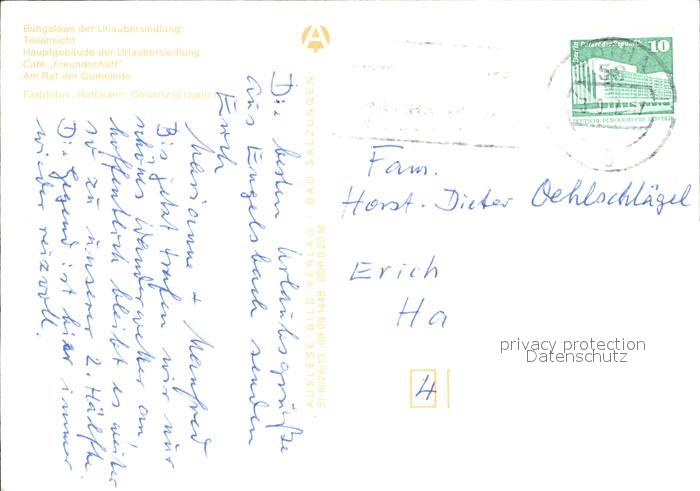 Bungalows der Urlaubersiedlung
Teilansicht
Hauptgebäude der Urlaubersiedlung
Café „Freundschaft"
Am Rat der Gemeinde
Farbfotos: Hoffmann, Oelsnitz (Erzgeb
A
AUSLESE-BILD-VERLAG · BAD SALZUNGEN
St 09 09 1448 DDR 0,20 M
Die besten Urlaubsgrüße
aus Engelsbach senden
Euch
Marianne + Manfred
Bis jetzt trafen wir nur
schönes Wanderwetter an,
hoffentlich bleibt es weiter
so zu unserer 2. Hälfte.
Die Gegend ist hier immer
wieder reizvoll.
Berlin, Palast der Republik
10
DEUTSCHE DEMOKRATISCHE
Fam.
Horst-Dieter Oehlschlägel
Erich
Ha
4
privacy protection
Datenschutz